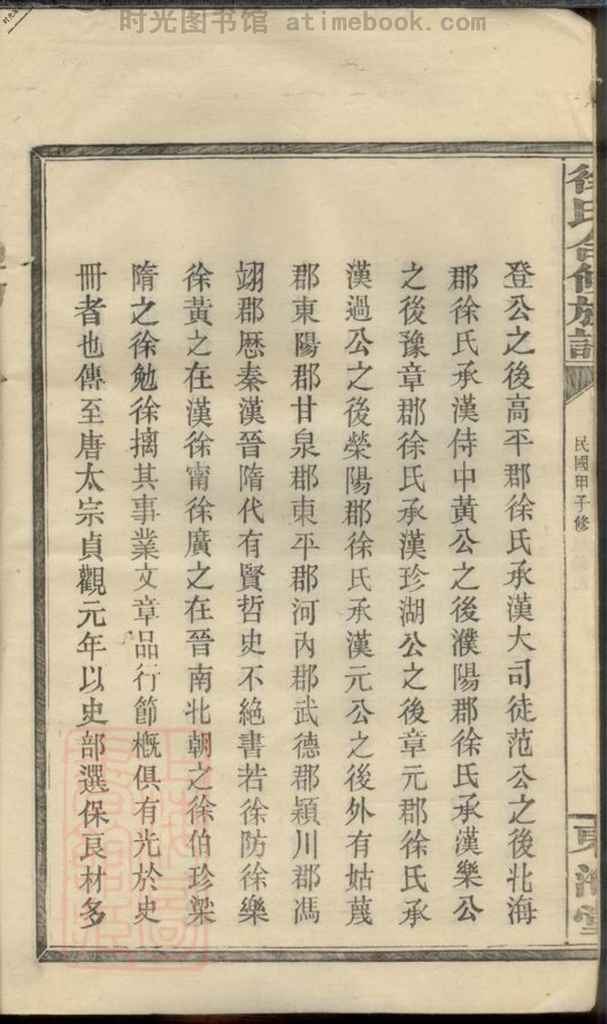 时光图书馆 atimebook.com
徐氏合修族譜
民國甲子修
東海堂
登公之後高平郡徐氏承漢大司徒范公之後北海
郡徐氏承漢侍中黃公之後濮陽郡徐氏承漢樂公
之後豫章郡徐氏承漢珍湖公之後章元郡徐氏承
漢過公之後榮陽郡徐氏承漢元公之後外有姑蔑
郡東陽郡甘泉郡東平郡河內郡武德郡潁川郡馮
翊郡歷秦漢晉隋代有賢哲史不絕書若徐防徐樂
徐黃之在漢徐甯徐廣之在晉南北朝之徐伯珍梁
隋之徐勉徐摛其事業文章品行節概俱有光於史
冊者也傳至唐太宗貞觀元年以史部選保良材多